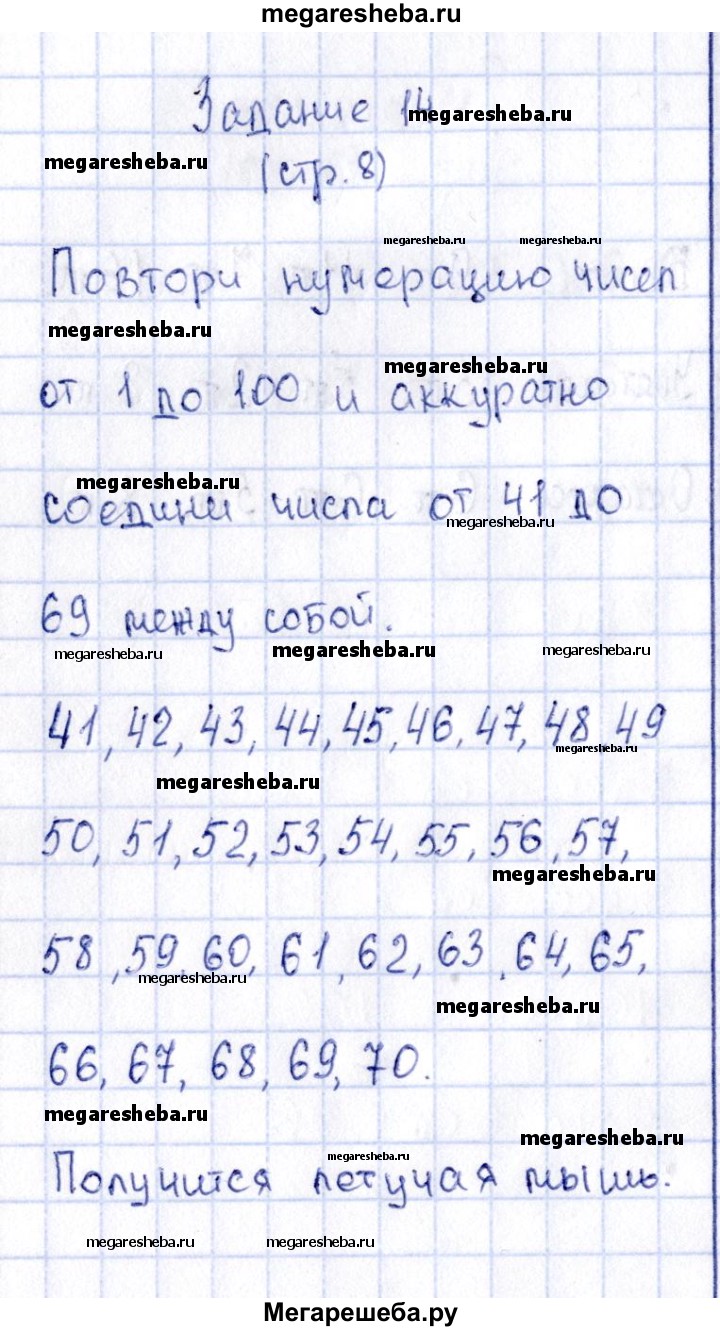 megaresheba.ru
Задание 14
megaresheba.ru
megaresheba.ru
(стр. 8)
megaresheba.ru megaresheba.ru
Повтори нумерацию чисел
megaresheba.ru
megaresheba.ru
от 1 до 100 и аккуратно
megaresheba.ru
соедини числа от 41 до
megaresheba.ru
69 между собой.
megaresheba.ru megaresheba.ru megaresheba.ru
41, 42, 43, 44, 45, 46, 47, 48, 49
megaresheba.ru
megaresheba.ru
50, 51, 52, 53, 54, 55, 56, 57,
megaresheba.ru
58, 59, 60, 61, 62, 63, 64, 65,
megaresheba.ru
megaresheba.ru
66, 67, 68, 69, 70.
megaresheba.ru
megaresheba.ru
megaresheba.ru
Получится летучая мышь.
megaresheba.ru megaresheba.ru
Мегарешеба.ру